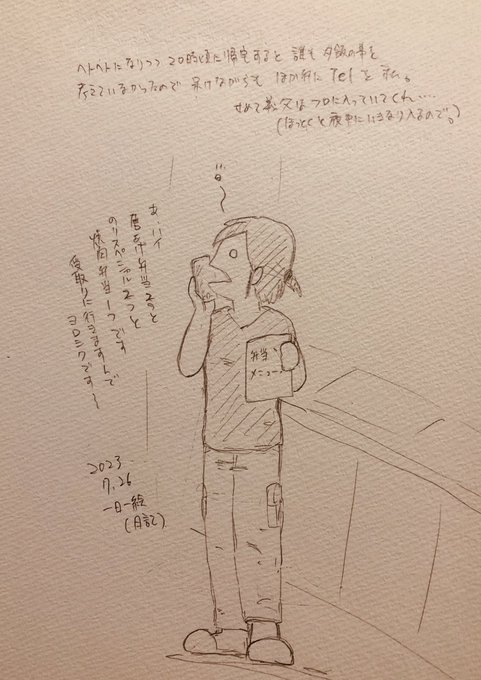 ヘトヘトになりつつ 20時頃に帰宅すると 誰も 夕飯の事を
考えていなかったので 呆けながらも ほか弁に Tel を 私。
せめて義父はフロに入っていてくれ……
(ほっとくと夜中にいきなり入るので。)
あ、ハイ
唐あげ弁当2つと
のりスペシャル2つと
焼肉弁当1つです
受取りに行きますんで
ヨロシクです〜
弁当、
メニュー
2023.
7.26
一日一絵
(日記)